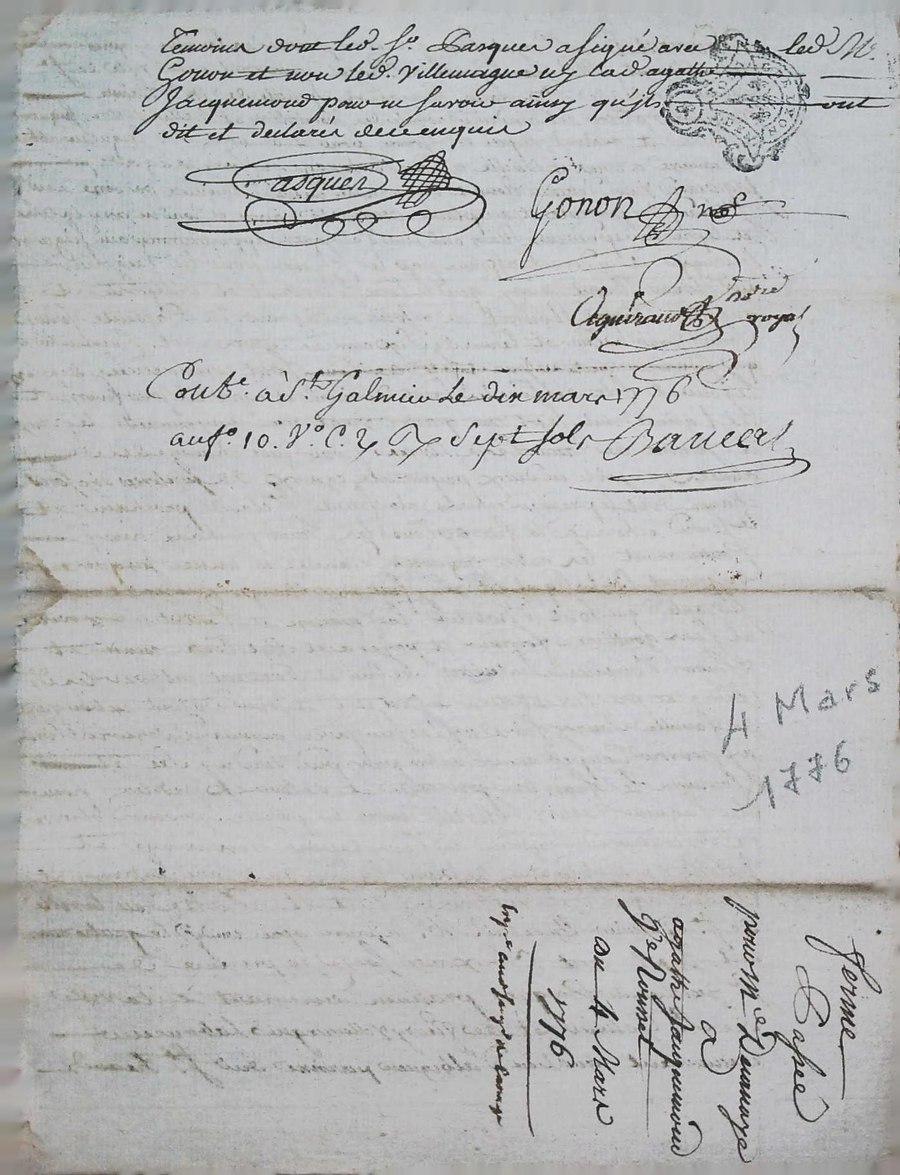 temoins dont led. Sr. Pasquer a signé avec led. Me.
Gonon et non led. Villemagne ny lad. agathe
Jacquemond pour ne savoir ainsy qu'ils ont
dit et declarés de ce enquis
Pasquer
Gonon nore
notre
royal
Contle. à St. Galmier Le dix mars 1776
au fo. 10. Vo. C. 2 Sept sols
4 Mars
1776
ferme
Passée
pour Me
a
agathe Jacquemond
ve
du 4 Mars
1776